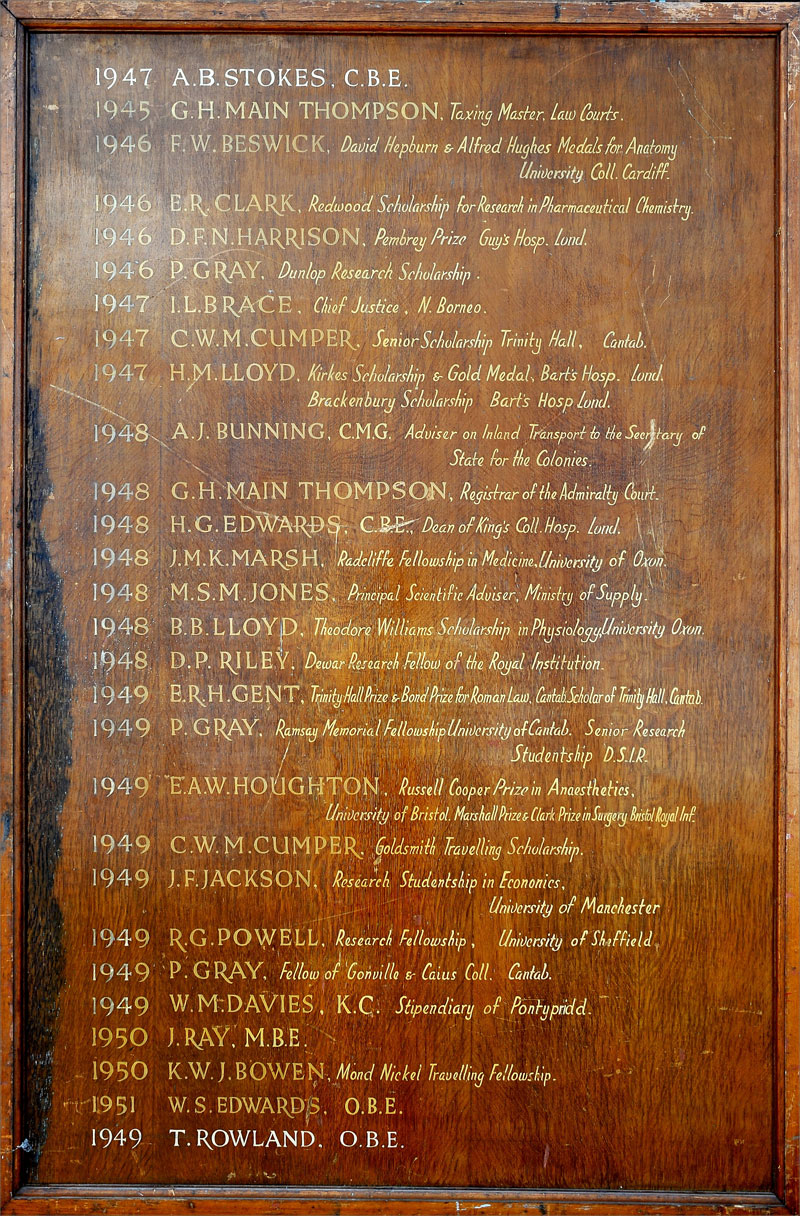 1947 A.B. STOKES, C.B.E.
1945 G.H. MAIN THOMPSON, Taxing Master, Law Courts.
1946 F.W. BESWICK, David Hepburn & Alfred Hughes Medals for Anatomy
University Coll. Cardiff.
1946 E.R. CLARK, Redwood Scholarship for Research in Pharmaceutical Chemistry.
1946 D.F.N. HARRISON, Pembrey Prize Guy's Hosp. Lond.
1946 P. GRAY, Dunlop Research Scholarship.
1947 I.L. BRACE, Chief Justice, N. Borneo.
1947 C.W.M. CUMPER, Senior Scholarship Trinity Hall, Cantab.
1947 H.M. LLOYD, Kirkes Scholarship & Gold Medal, Bart's Hosp. Lond.
Brackenbury Scholarship Bart's Hosp Lond.
1948 A.J. BUNNING, C.M.G. Adviser on Inland Transport to the Secretary of
State for the Colonies.
1948 G.H. MAIN THOMPSON, Registrar of the Admiralty Court.
1948 H.G. EDWARDS, C.B.E., Dean of King's Coll. Hosp. Lond.
1948 J.M.K. MARSH, Radcliffe Fellowship in Medicine, University of Oxon.
1948 M.S.M. JONES, Principal Scientific Adviser, Ministry of Supply.
1948 B.B. LLOYD, Theodore Williams Scholarship in Physiology, University Oxon.
1948 D.P. RILEY, Dewar Research Fellow of the Royal Institution.
1949 E.R.H. GENT, Trinity Hall Prize & Bond Prize for Roman Law, Cantab. Scholar of Trinity Hall, Cantab.
1949 P. GRAY, Ramsay Memorial Fellowship University of Cantab. Senior Research
Studentship D.S.I.R.
1949 E.A.W. HOUGHTON, Russell Cooper Prize in Anaesthetics,
University of Bristol, Marshall Prize & Clark Prize in Surgery Bristol Royal Inf.
1949 C.W.M. CUMPER, Goldsmith Travelling Scholarship.
1949 J.F. JACKSON, Research Studentship in Economics,
University of Manchester
1949 R.G. POWELL, Research Fellowship, University of Sheffield
1949 P. GRAY, Fellow of Gonville & Caius Coll. Cantab.
1949 W.M. DAVIES, K.C. Stipendiary of Pontypridd.
1950 J. RAY, M.B.E.
1950 K.W.J. BOWEN, Mond Nickel Travelling Fellowship.
1951 W.S. EDWARDS, O.B.E.
1949 T. ROWLAND, O.B.E.